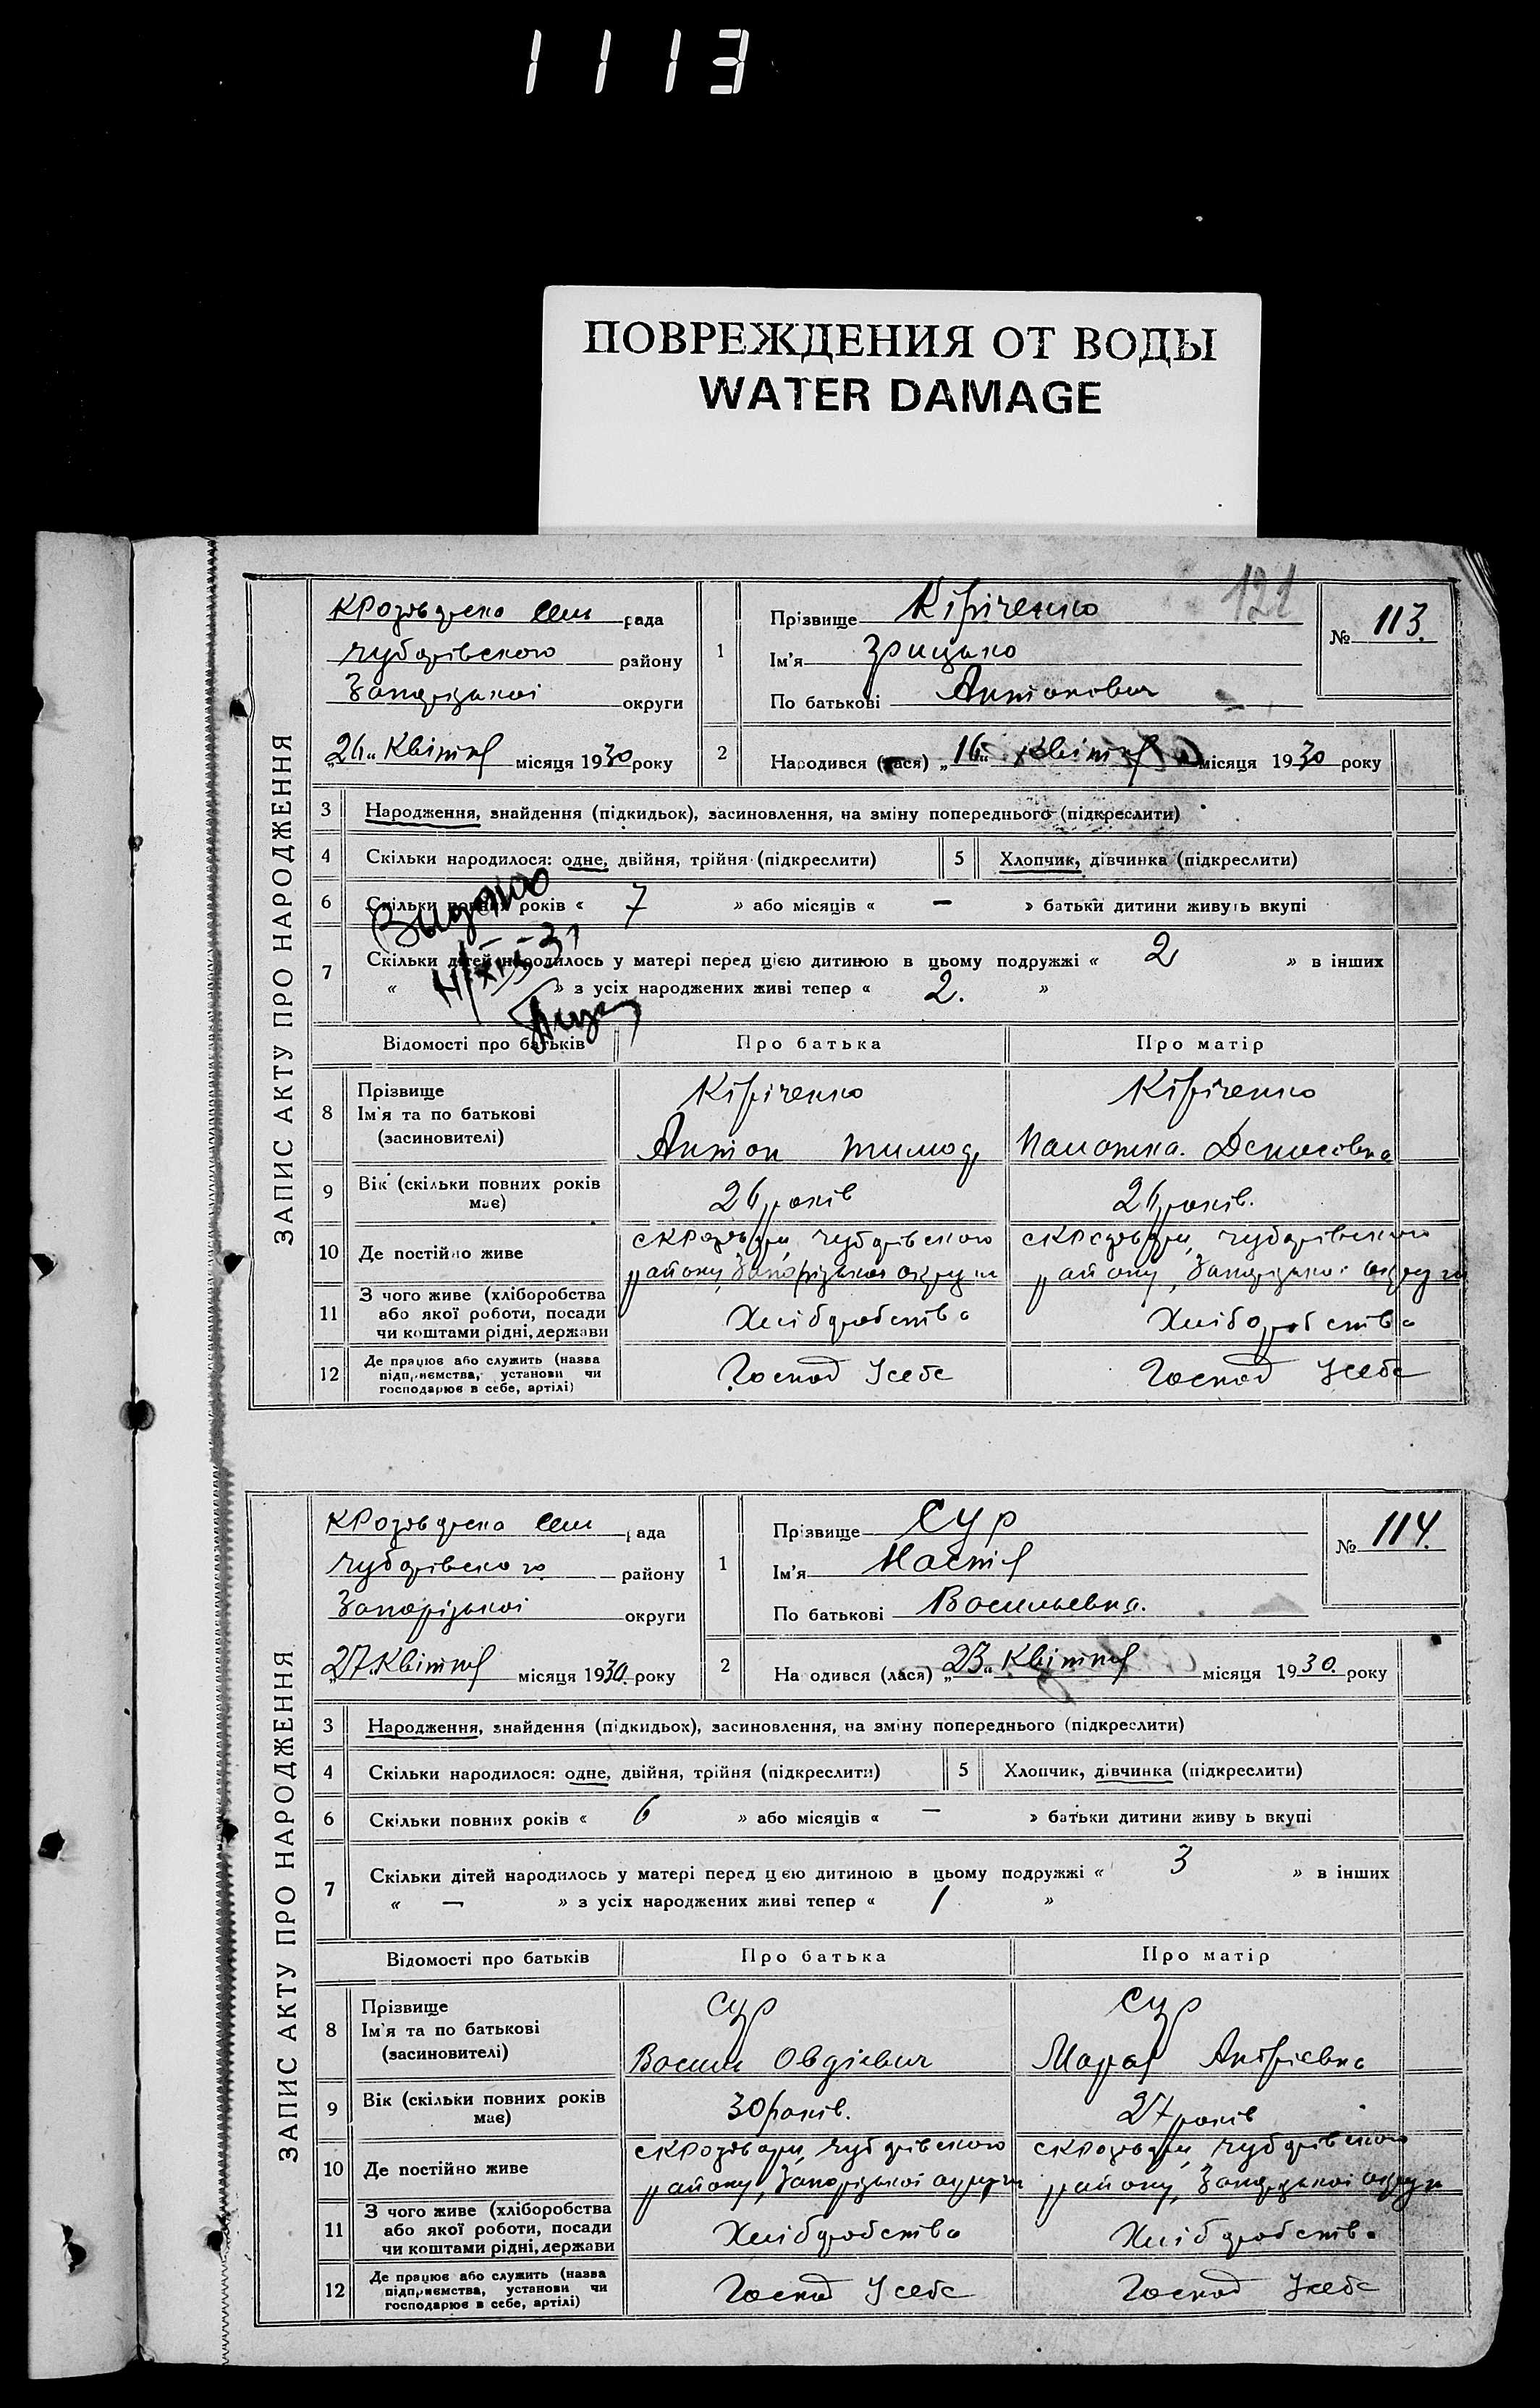 1113
ПОВРЕЖДЕНИЯ ОТ ВОДЫ
WATER DAMAGE
121
ЗАПИС АКТУ ПРО НАРОДЖЕННЯ
КРоздорска Сель рада
Чубарівского району
Запорізької округи
„26“ Квітня місяця 1930 року
1 Прізвище Кіріченко
Ім'я Грицько
По батькові Антонович
№ 113.
2 Народився (лася) „16“ Квітня місяця 1930 року
3 Народження, знайдення (підкидьок), засиновлення, на зміну попереднього (підкреслити)
4 Скільки народилося: одне, двійня, трійня (підкреслити) 5 Хлопчик, дівчинка (підкреслити)
6 Скільки повних років « 7 » або місяців « — » батьки дитини живуть вкупі
Видано
7 Скільки дітей народилось у матері перед цією дитиною в цьому подружжі « 2 » в інших
« » з усіх народжених живі тепер « 2. »
Відомості про батьків Про батька Про матір
8 Прізвище Ім'я та по батькові (засиновителі)
Кіріченко Кіріченко
Антон Тимоф Денисівна
9 Вік (скільки повних років має) 26 років 26 років.
10 Де постійно живе
сКРоздори, Чубарівского сКРоздори, Чубарівского
району, Запорізької округи району, Запорізької округи
11 З чого живе (хліборобства або якої роботи, посади чи коштами рідні, держави Хліборобства Хліборобства
12 Де працює або служить (назва підприємства, установи чи господарює в себе, артілі) Господ Усебе Господ Усебе
ЗАПИС АКТУ ПРО НАРОДЖЕННЯ
КРоздорска Сель рада
Чубарівского району
Запорізької округи
„27“ Квітня місяця 1930. року
1 Прізвище Сур
Ім'я Настя
По батькові Васильевна.
№ 114.
2 На одився (лася) „23“ Квітня місяця 1930. року
3 Народження, знайдення (підкидьок), засиновлення, на зміну попереднього (підкреслити)
4 Скільки народилося: одне, двійня, трійня (підкреслити) 5 Хлопчик, дівчинка (підкреслити)
6 Скільки повних років « 6 » або місяців « — » батьки дитини живу ь вкупі
7 Скільки дітей народилось у матері перед цією дитиною в цьому подружжі « 3 » в інших
« — » з усіх народжених живі тепер « 1 »
Відомості про батьків Про батька Про матір
8 Прізвище Ім'я та по батькові (засиновителі)
Сур Сур
Васил Овдієвич Марія Андріевна
9 Вік (скільки повних років має) 30 років. 27 років
10 Де постійно живе
сКРоздори, Чубарівского сКРоздори, Чубарівского
району, Запорізької округи району, Запорізької округи
11 З чого живе (хліборобства або якої роботи, посади чи коштами рідні, держави Хліборобства Хліборобства
12 Де працює або служить (назва підприємства, установи чи господарює в себе, артілі) Господ Усебе Господ Усебе